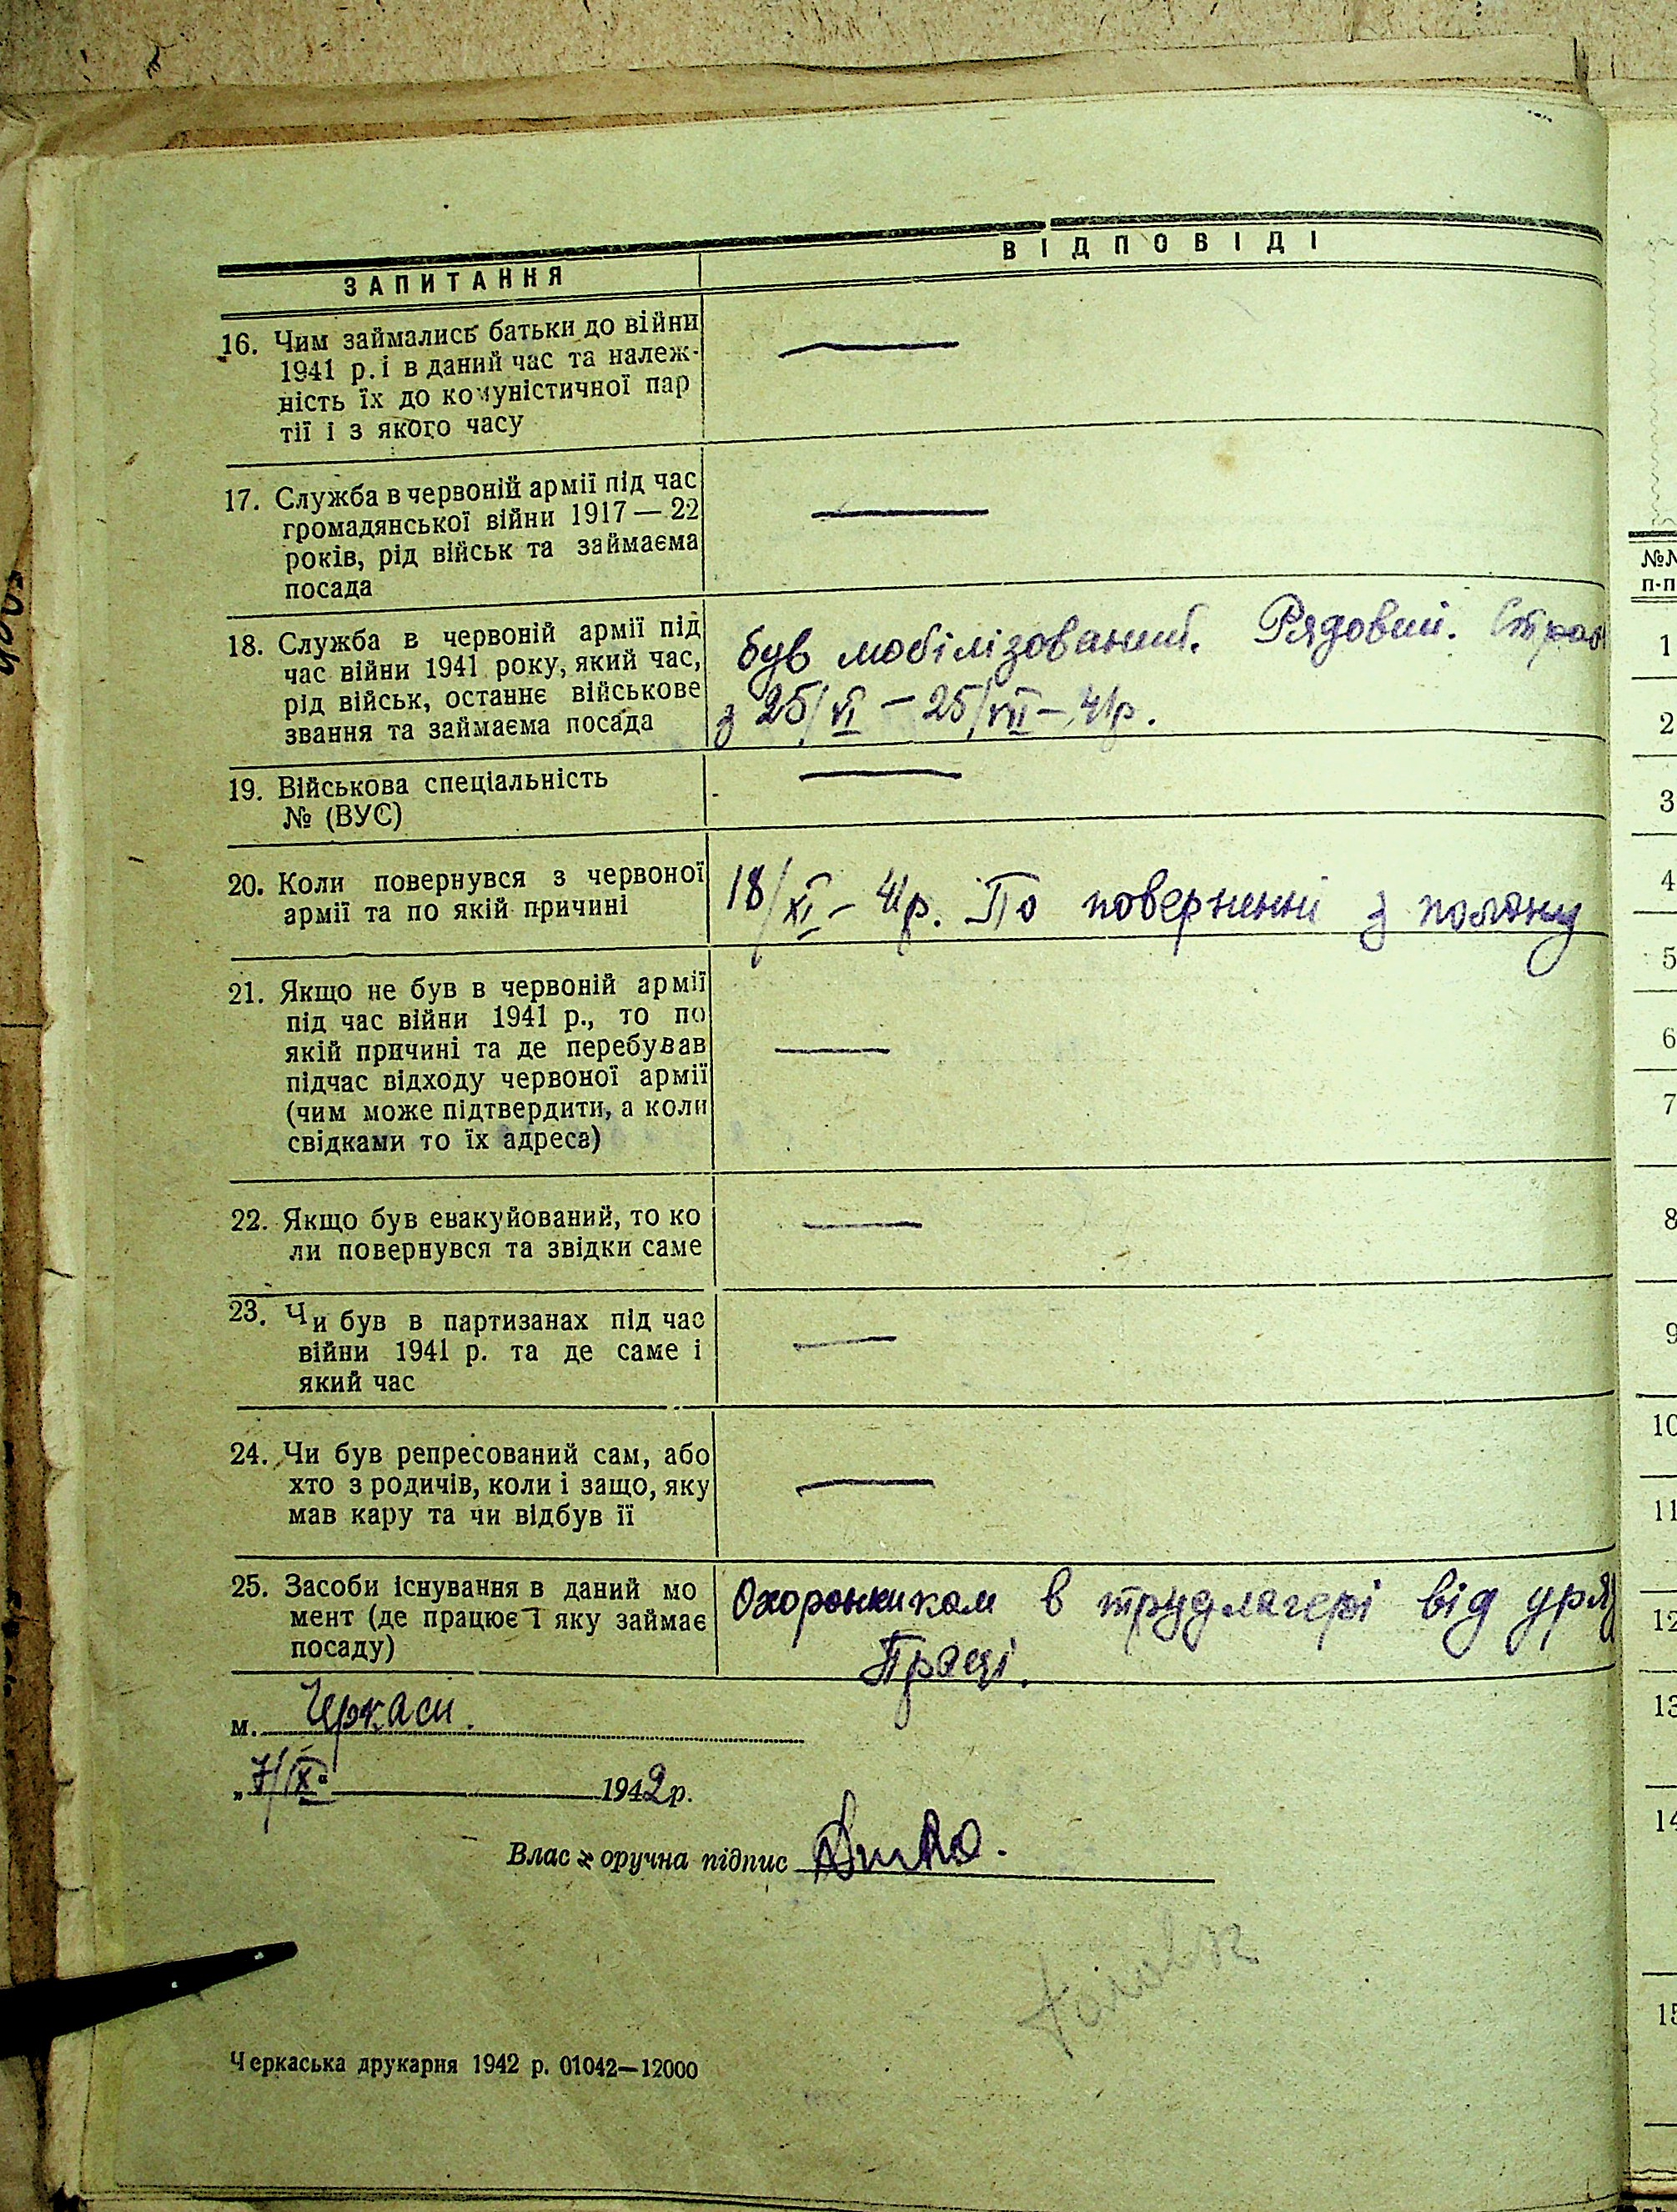 ЗАПИТАННЯ
ВІДПОВІДІ
16. Чим займались батьки до війни
1941 р. і в даний час та належ-
ність їх до комуністичної пар
тії і з якого часу
17. Служба в червоній армії під час
громадянської війни 1917 — 22
років, рід військ та займаєма
посада
18. Служба в червоній армії під
час війни 1941 року, який час,
рід військ, останнє військове
звання та займаєма посада
був мобілізований. Рядовий.
з 25/VI — 25/VII — 41р.
19. Військова спеціальність
№ (ВУС)
20. Коли повернувся з червоної
армії та по якій причині
18/XI — 41р. По поверненні з полону
21. Якщо не був в червоній армії
під час війни 1941 р., то по
якій причині та де перебував
підчас відходу червоної армії
(чим може підтвердити, а коли
свідками то їх адреса)
22. Якщо був евакуйований, то ко
ли повернувся та звідки саме
23. Чи був в партизанах під час
війни 1941 р. та де саме і
який час
24. Чи був репресований сам, або
хто з родичів, коли і защо, яку
мав кару та чи відбув її
25. Засоби існування в даний мо
мент (де працює і яку займає
посаду)
Охоронником в трудлагері від
Праці.
м. Черкаси.
„ 7/IX 1942 р.
Власноручна підпис
Черкаська друкарня 1942 р. 01042—12000
№№
п-п
1
2
3
4
5
6
7
8
9
10
11
12
13
14
15